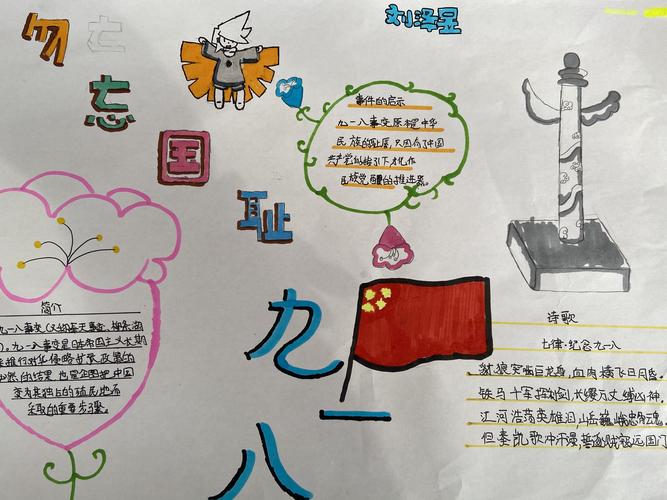 勿忘
忘
国
耻
刘泽昱
事件的启示
九一八事变原本是中华
民族的耻辱,只因为了中国
共产党的领引下才化作
民族觉醒的推进器。
简介
九一八事变(又称奉天事变、柳条湖
),九一八事变是日本帝国主义长期
推行对华侵略扩张政策的
必然的结果,也是企图把中国
变为其独占的殖民地而
采取的重要步骤。
九
一
八
诗歌
七律·纪念九一八
豺狼突嘶巨龙身,血肉横飞日月昏。
铁马十军挥利剑,长缨万丈缚凶神。
江河浩荡英雄泪,山岳巍峨忠魂
但奏凯歌冲汗漫,普逐贼寇远国门